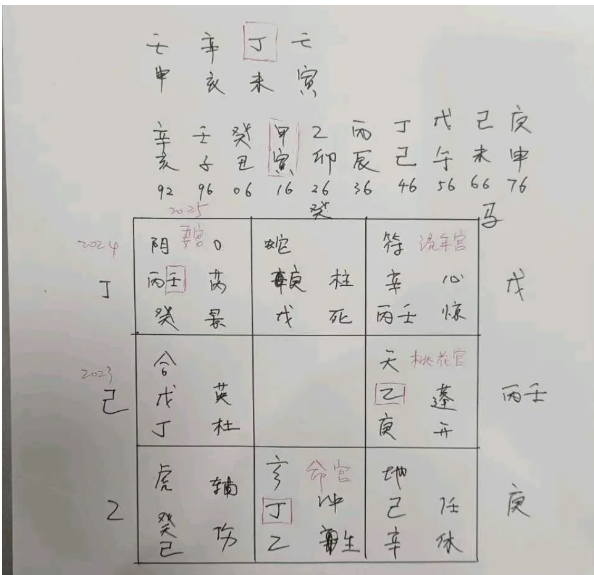 壬 辛 丁 壬
申 亥 未 寅
辛 壬 癸 甲 乙 丙 丁 戊 己 庚
亥 子 丑 寅 卯 辰 巳 午 未 申
92 96 06 16 26 36 46 56 66 76
2025 癸 马
2024 阴 O 蛇 符 流年宫
丁 丙壬 芮 庚 柱 辛 心 戊
癸 景 戊 死 丙壬 惊
合 天 桃花宫
2023 戊 英 乙 蓬 丙壬
己 丁 杜 庚 开
虎 辅 玄 命宫 地
乙 癸 丁 冲 己 任 庚
己 伤 乙 生 辛 休